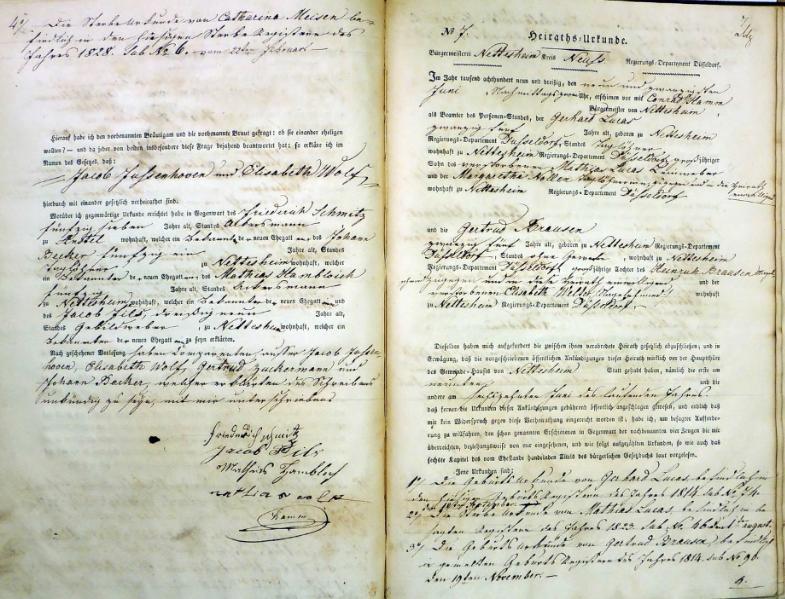 4) Die Sterbe Urkunde von Catharina Meisen be-
findlich in den hiesigen Sterbe Registern des
Jahres 1828. sub No 6. vom Februar
Hierauf habe ich den vorbenannten Bräutigam und die vorbenannte Braut gefragt: ob sie einander ehelichen
wollen? — und da jeder von beiden insbesondere diese Frage bejahend beantwortet hat: so erkläre ich im
Namen des Gesetzes, daß:
Jacob Jussenhoven und Elisabeth Wolf
hierdurch mit einander gesetzlich verheirathet sind.
Worüber ich gegenwärtige Urkunde errichtet habe in Gegenwart des Friederich Schmitz
fünfzig sieben Jahre alt, Standes Akersmann
zu wohnhaft, welcher ein Bekannter de r neuen Ehegatten, des Johann
Becker fünfzig ein Jahre alt, Standes
Taglöhner zu Nettesheim wohnhaft, welcher
ein Bekannter de r neuen Ehegatten, des Mathias Hambloich
fünfzig Jahre alt, Standes Akersmann
zu Nettesheim wohnhaft, welcher ein Bekannter de r neuen Ehegatten und
des Jacob Fels, dreißig neun Jahre alt,
Standes Gebildweber zu Nettesheim wohnhaft, welcher ein
Bekannter de r neuen Ehegatten zu seyn erklärten.
Nach geschehener Vorlesung haben Comparenten außer Jacob Jussen-
hoven, Elisabeth Wolf, Gertrud Zuckermann und
Johann Becker, welche erklärten des Schreibens
unkündig zu seyn, mit mir unterschrieben
Friederich Schmitz
Jacob Fels
Mathias Hambloch
Hamm
No 7. Heiraths-Urkunde.
Bürgermeisterei Nettesheim Kreis Neuss Regierungs-Departement Düsseldorf.
Im Jahr tausend achthundert neun und dreißig, den neun und zwanzigsten
Juni Nachmittags Uhr, erschienen vor mir Conrad Hamm
Bürgermeister von Nettesheim,
als Beamten des Personen-Standes, der Gerhard Lucas
zwanzig fünf Jahre alt, geboren zu Nettesheim
Regierungs-Departement Düsseldorf, Standes Taglöhner
wohnhaft zu Nettesheim Regierungs-Departement Düsseldorf großjähriger
Sohn des verstorbenen Mathias Lucas
und der Margaretha
wohnhaft zu Nettesheim Regierungs-Departement Düsseldorf
und die Gertrud Brausen
zwanzig fünf Jahre alt, geboren zu Nettesheim Regierungs-Departement
Düsseldorf, Standes ohne Gewerbe, wohnhaft zu Nettesheim
Regierungs-Departement Düsseldorf großjährige Tochter des Heinrich Brausen
und der
verstorbenen Elisabeth wohnhaft
zu Nettesheim Regierungs-Departement Düsseldorf.
Dieselben haben mich aufgefordert die zwischen ihnen verabredete Heirath gesetzlich abzuschließen; und in
Erwägung, daß die vorgeschriebenen öffentlichen Ankündigungen dieser Heirath wirklich vor der Hauptthüre
des Gemeinde-Hauses von Nettesheim Statt gehabt haben, nämlich die erste am
neunten und die
andere am sechszehnten Juni des laufenden Jahres.
daß ferner die Urkunden dieser Ankündigungen gehörend öffentlich angeschlagen gewesen, und endlich daß
mir kein Widerspruch wegen dieser Verheirathung eingereicht worden ist; habe ich, um besagter Aufforde-
rung zu willfahren, den schon genannten Erschienenen in Gegenwart der nachbenannten vier Zeugen die mir
überreichten, beziehungsweise von mir eingesehenen, und wie folgt aufgezählten Urkunden, so wie auch das
sechste Kapitel des vom Ehestande handelnden Titels des bürgerlichen Gesetzbuches laut vorgelesen.
Jene Urkunden sind:
1) Die Geburts Urkunde von Gerhard Lucas befindlich in
den hiesigen Geburts Registern des Jahres 1814. sub No 74.
den September
2) Die Sterbe Urkunde von Mathias Lucas, befindlich in
Registern des Jahres 1823. sub No 46 August.
3) Die Geburts Urkunde von Gertrud Brausen befindlich
in gemelten Geburts Registern des Jahres 1814. sub No 90.
den 19ten November. —